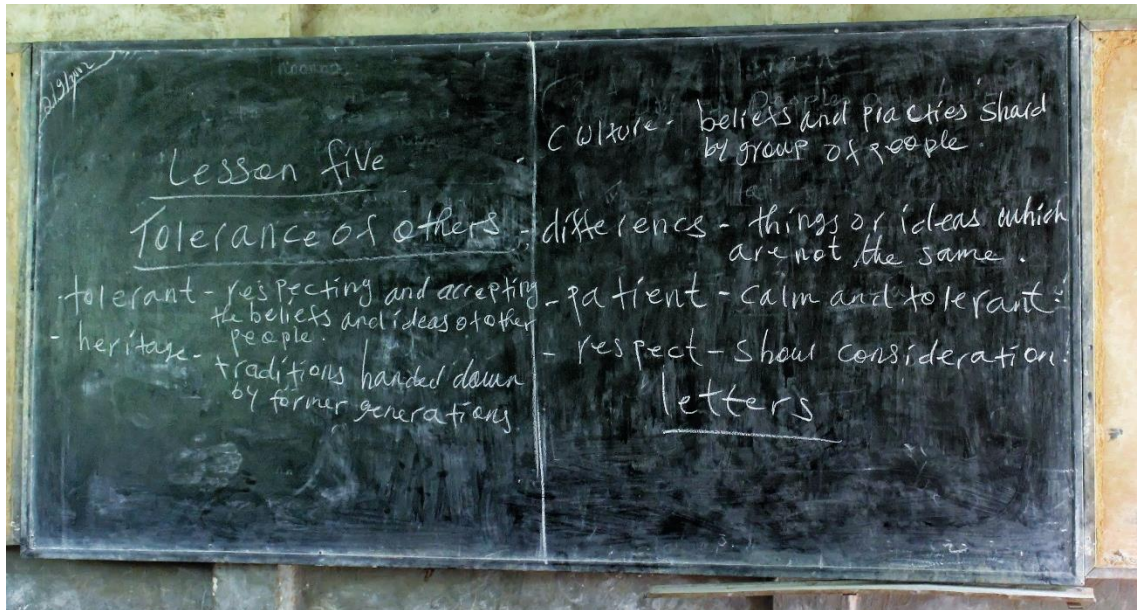 Lesson five
Tolerance of others
. tolerant - respecting and accepting
the beliefs and ideas of other
people.
- heritage - traditions handed down
by former generations
- Culture - beliefs and practies shard
by group of people.
- differencs - things or ideas which
are not the same.
- patient - calm and tolerant.
- respect - show consideration.
letters